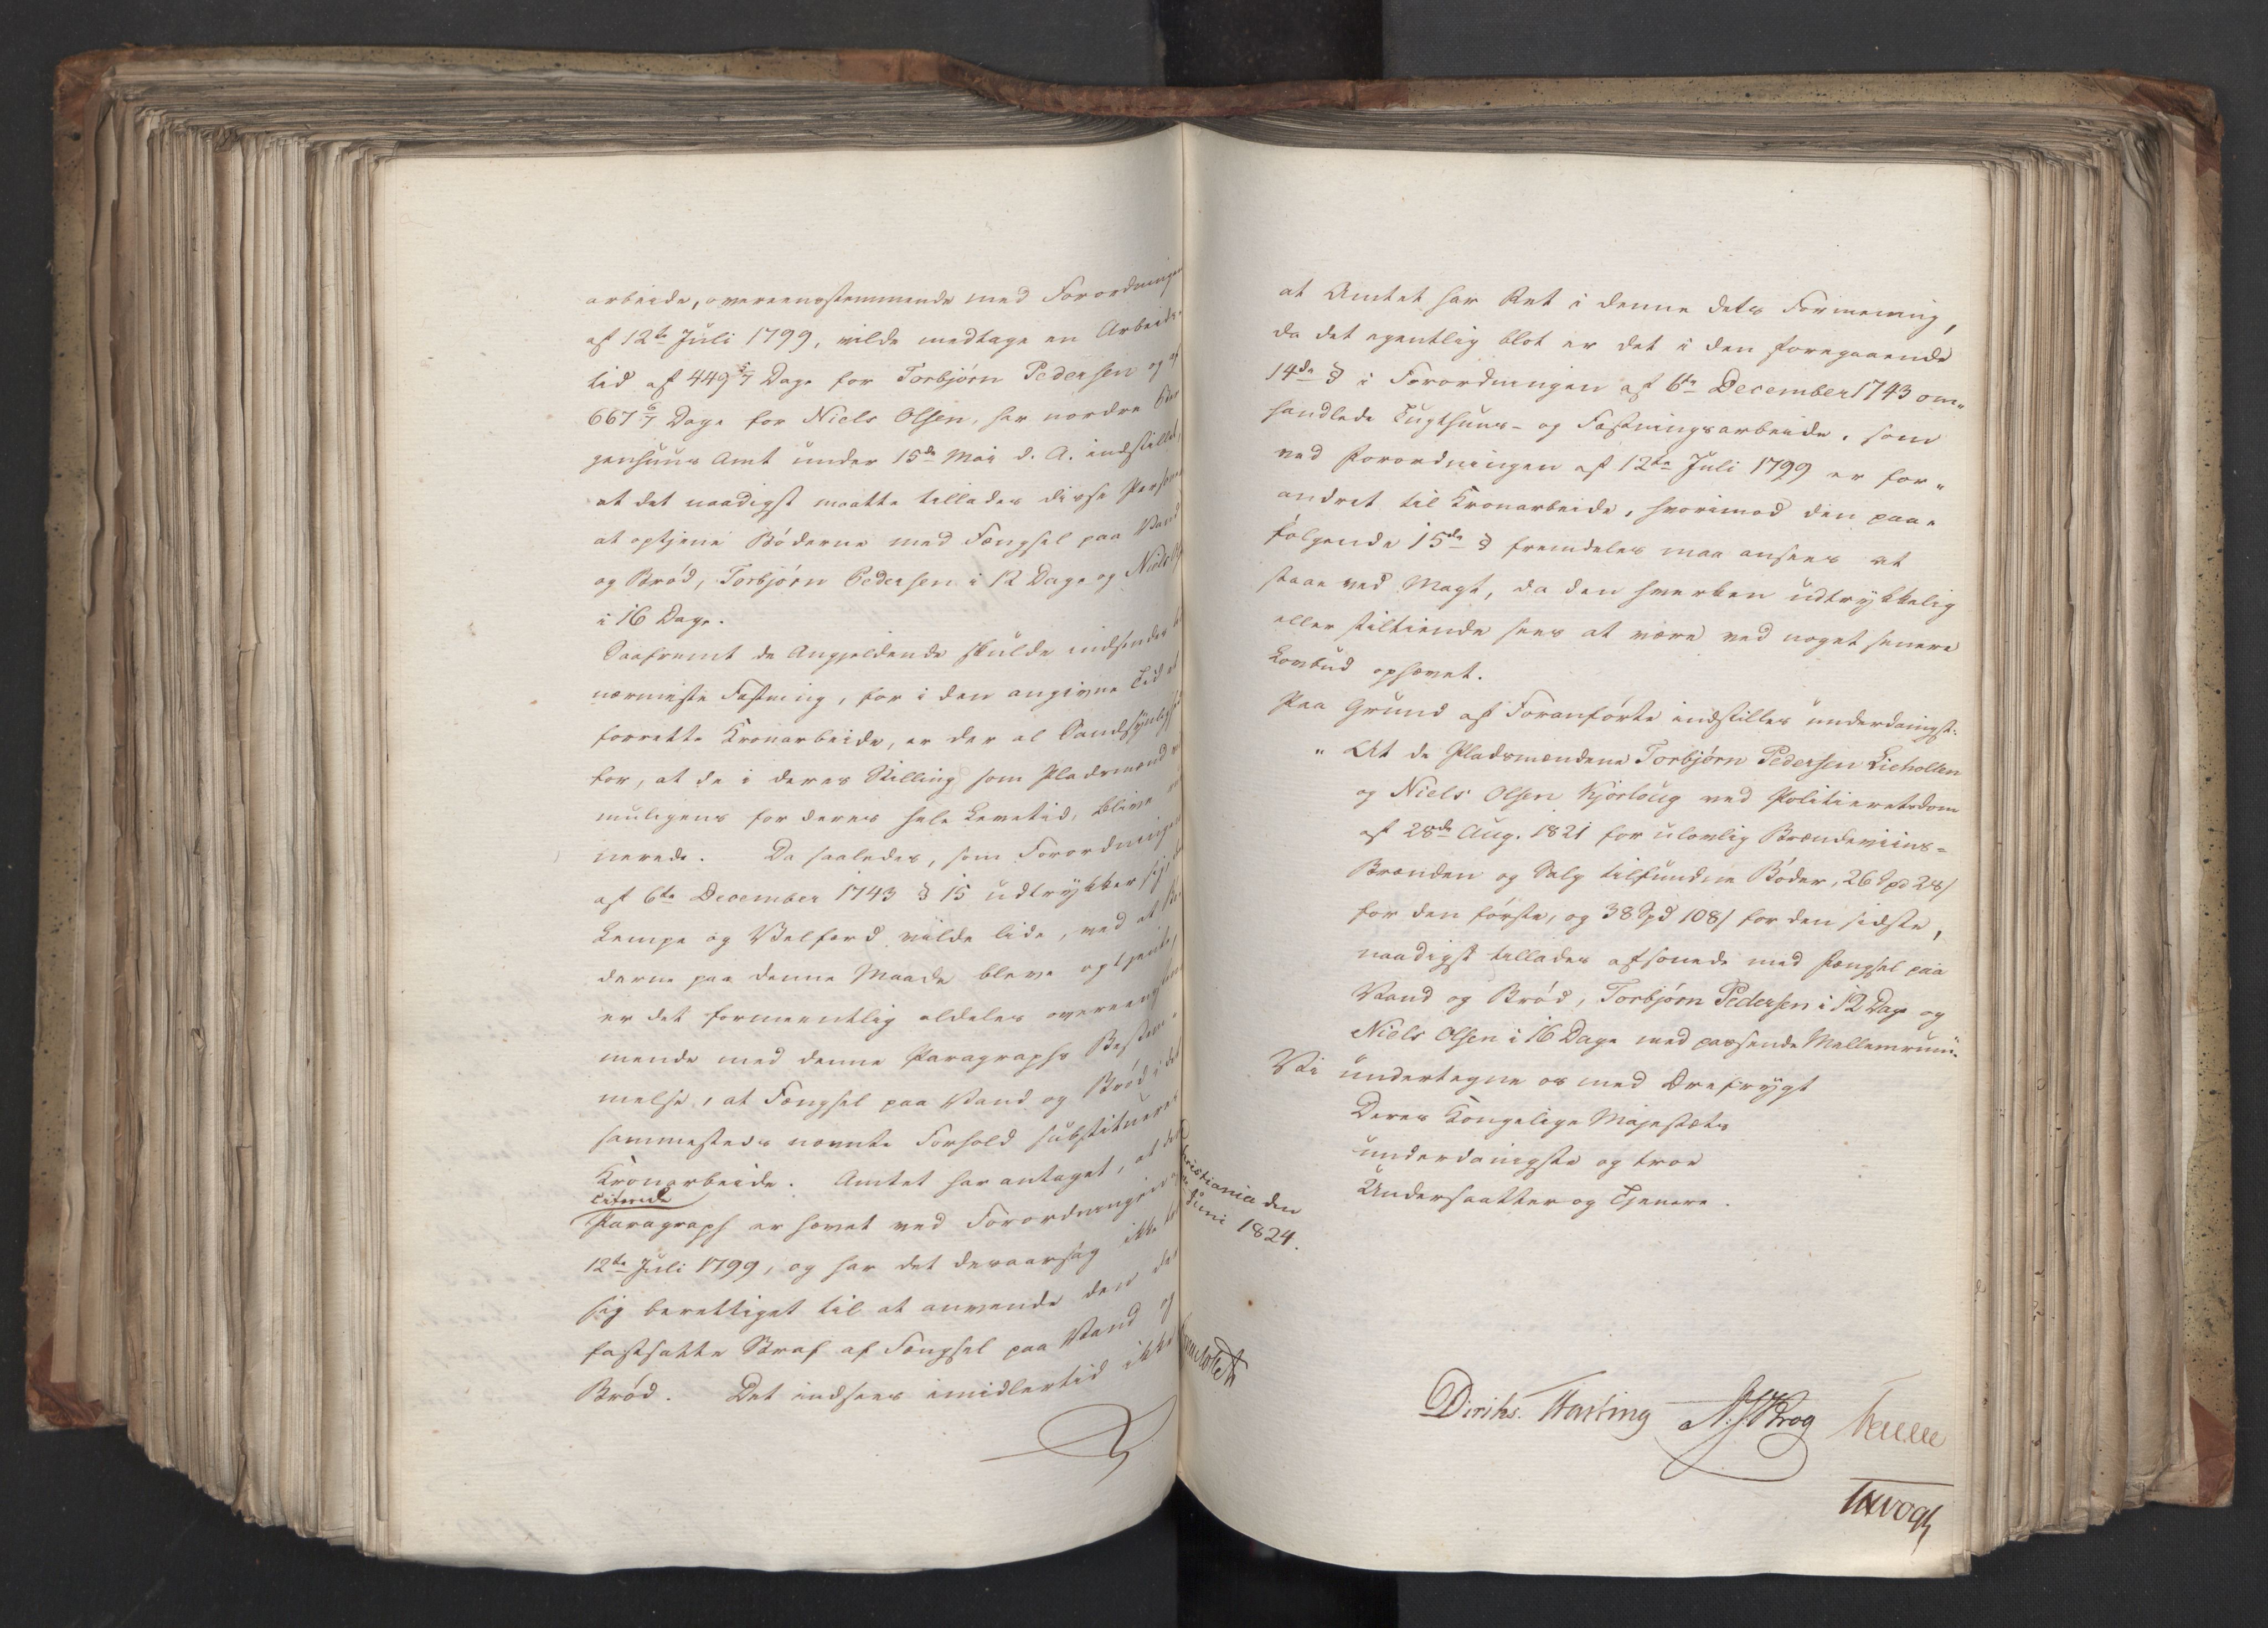 arbeide, overeensstemmende med Forordningen
af 12te Juli 1799, vilde medtage en Arbeids-
tid af 449 5/7 Dage for Torbjørn Pedersen og af
667 6/7 Dage for Niels Olsen, har nordre Ber
genhuus Amt under 15de Mai d. A. indstillet,
at det naadigst maatte tillades disse Personer
at optjene Bøderne med Fængsel paa Vand
og Brød, Torbjørn Pedersen i 12 Dage og Niels
i 16 Dage.
Saafremt de Angjeldende skulde indsendes til
nærmeste Fæstning, for i den angivne Tid at
forrette Kronarbeide, er der al Sandsynlighed
for, at de i deres Stilling som Pladsmænd
muligens for deres hele Levetid, blive
nerede. Da saaledes, som Forordningen
af 6te December 1743 § 15 udtrykker sig,
Lempe og Velfærd vilde lide, ved at Bø-
derne paa denne Maade bleve optjente,
er det formeentlig aldeles overeensstem-
mende med denne Paragraphs Bestem-
melse, at Fængsel paa Vand og Brød i det
sammesteds nævnte Forhold substitueres
Kronarbeide. Amtet har antaget, at den
citerede
Paragraph er hævet ved Forordningen af
12te Juli 1799, og har det desaarsag ikke
sig berettiget til at anvende den
fastsatte Straf af Fængsel paa Vand og
Brød. Det indsees imidlertid ikke
at Amtet har Ret i denne dets Formening,
da det egentlig blot er det i den foregaaende
14de § i Forordningen af 6te December 1743 om-
handlede Tugthuus- og Fæstningsarbeide, som
ved Forordningen af 12te Juli 1799 er for-
andret til Kronarbeide, hvorimod den paa-
følgende 15de § fremdeles maa ansees at
staae ved Magt, da den hverken udtrykkelig
eller stiltiende sees at være ved noget senere
Lovbud ophævet.
Paa Grund af Foranførte indstilles underdanigst:
"At de Pladsmændene Torbjørn Pedersen Lieholten
og Niels Olsen Kjørloug ved Politieretsdom
af 28de Aug. 1821 for ulovlig Brændeviins-
Brænden og Salg tilfundne Bøder, 26 Spd 28 s
for den første, og 38 Spd 108 s for den sidste,
naadigst tillades afsonede med Fængsel paa
Vand og Brød, Torbjørn Pedersen i 12 Dage og
Niels Olsen i 16 Dage med passende Mellemrum.
Vi undertegne os med Ærefrygt
Deres Kongelige Majestæts
underdanigste og troe
Undersaatter og Tjenere.
Christiania den
Juni 1824.
Diriks. Fasting Krog
Vogt